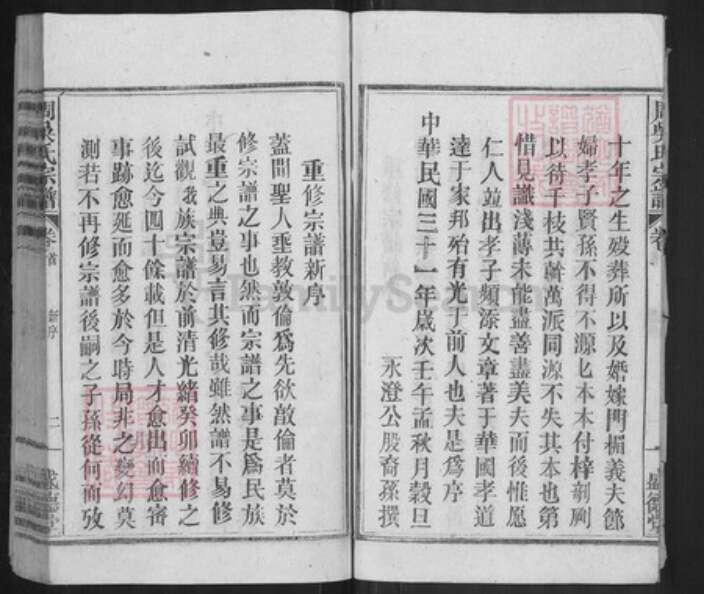 十年之生歿葬所以及婚嫁門楣義夫節
婦孝子賢孫不得不源匕本木付梓剞劂
以待千枝共蔕萬派同源不失其本也第
惜見識淺薄未能盡善盡美夫而後惟愿
仁人並出孝子頻添文章著于華國孝道
達于家邦殆有光于前人也夫是為序
中華民國三十一年歲次壬午孟秋月穀旦
永澄公股裔孫撰
盛德堂
周吳氏宗譜
卷首
新序
二
盛德堂
重修宗譜新序
蓋聞聖人垂教敦倫為先欲敵倫者莫於
修宗譜之事也然而宗譜之事是為民族
最重之典豈易言其修哉雖然譜不易修
試觀我族宗譜於前清光緒癸卯續修之
後迄今四十餘載但是人才愈出而愈審
事跡愈延而愈多於今時局非之變幻莫
測若不再修宗譜後嗣之子孫從何而攷
FamilySearch